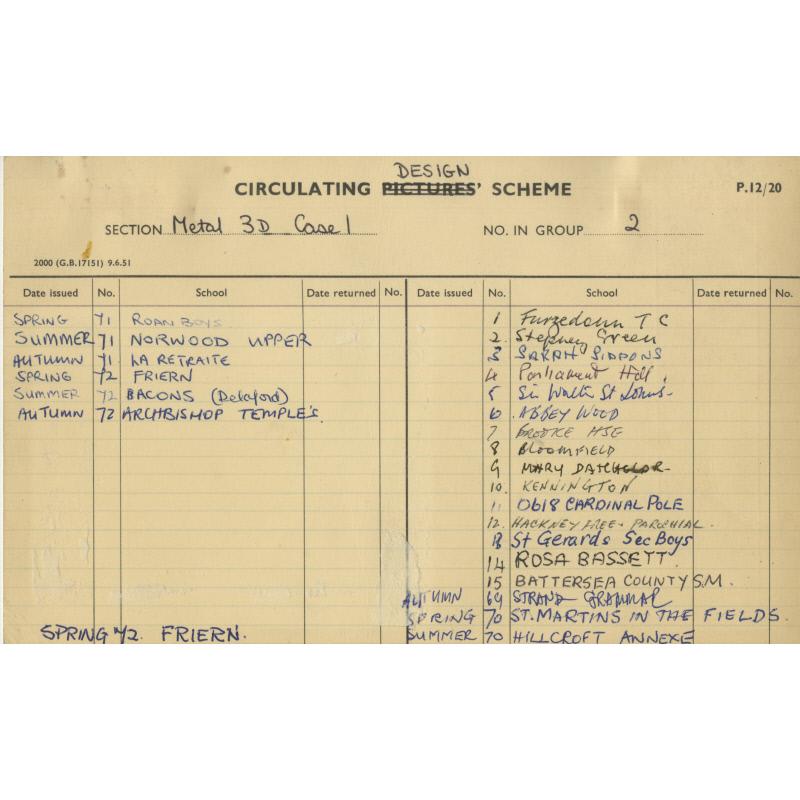 DESIGN
CIRCULATING PICTURES' SCHEME P.12/20
SECTION Metal 3D Case 1 NO. IN GROUP 2
2000 (G.B.17151) 9.6.51
Date issued No. School Date returned No.
SPRING 71 ROAN BOYS
SUMMER 71 NORWOOD UPPER
AUTUMN 71 LA RETRAITE
SPRING 72 FRIERN
SUMMER 72 BACONS (Delaford)
AUTUMN 72 ARCHBISHOP TEMPLE'S
SPRING 72. FRIERN.
Date issued No. School Date returned No.
1 Furzedown T C
2. Stepney Green
3 SARAH SIDDONS
4 Parliament Hill.
5 Sir Walter St Johns-
6 ABBEY WOOD
7 BROOKE HSE
8 BLOOMFIELD
9 MARY DATCHELOR
10. KENNINGTON
11 0618 CARDINAL POLE
12. HACKNEY FREE - PAROCHIAL.
13 St Gerards Sec Boys
14 ROSA BASSETT.
15 BATTERSEA COUNTY S.M.
AUTUMN 69 STRAND GRAMMAR
SPRING 70 ST. MARTINS IN THE FIELDS.
SUMMER 70 HILLCROFT ANNEXE